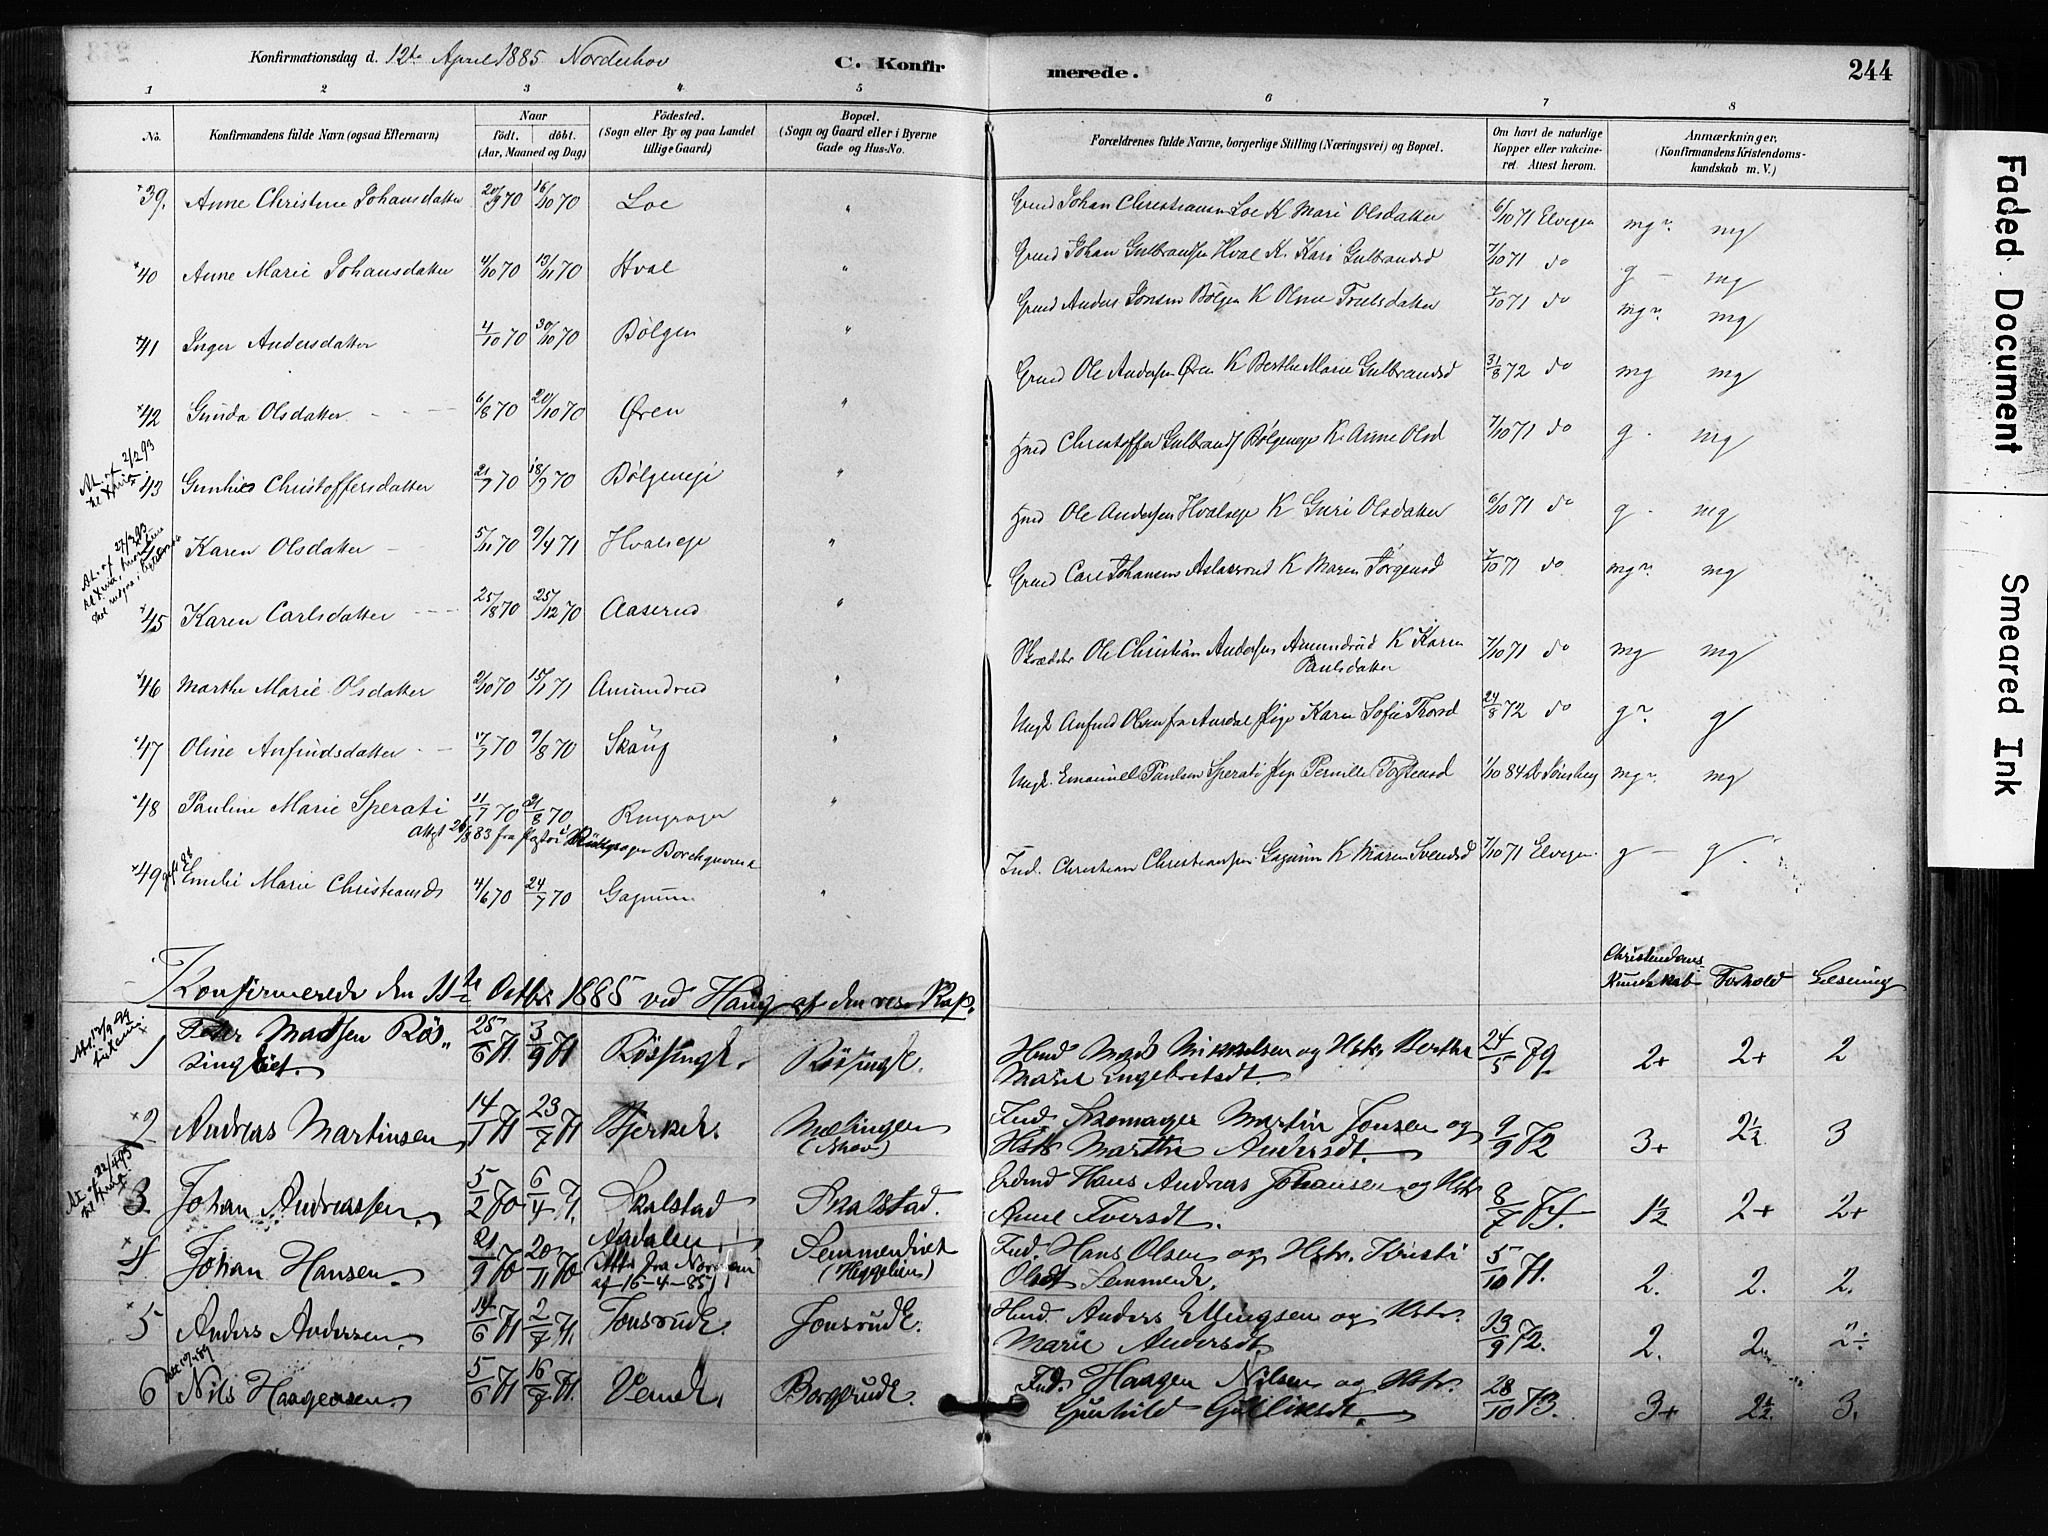 Konfirmationsdag d. 12te April 1885 Norderhov
C. Konfirmerede.
244
1 2 3 4 5 6 7 8
No.
Konfirmandens fulde Navn (ogsaa Efternavn)
Naar
födt. döbt.
(Aar, Maaned og Dag)
Födested.
(Sogn eller By og paa Landet
tillige Gaard)
Bopæl.
(Sogn og Gaard eller i Byerne
Gade og Hus-No.
Forældrenes fulde Navne, borgerlige Stilling (Næringsvei) og Bopæl.
Om havt de naturlige
Kopper eller vakcine-
ret Attest herom.
Anmærkninger,
(Konfirmandens Kristendoms-
kundskab m. V.)
39. Anne Christine Johansdatter 20/9 70 16/10 70 Loe " Grmd Johan Christiansen Loe K Mari Olsdatter 6/10 71 Elvegen mg mg
40 Anne Marie Johansdatter 4/10 70 13/11 70 Hval " Grmd Johan Gulbransen Hval K. Kari Gulbrandsd 7/10 71 do g - mg
41 Inger Andersdatter 4/10 70 30/10 70 Bölgen " Grmd Anders Jonsen Bölgen K Oline Truelsdatter 7/10 71 do mg mg
42 Gunda Olsdatter 6/8 70 20/10 70 Øren " Grmd Ole Andersen Øren K Berthe Marie Gulbrandsd 31/8 72 do mg mg
43 Gunhild Christoffersdatter 21/7 70 18/9 70 Bölgeneje " Hmd Christoffer Gulbrands Bölgeneje K. Anne Olsd 7/10 71 do g. mg
Karen Olsdatter 5/11 70 9/4 71 Hvalseje " Hmd Ole Andersen Hvalseje K Guri Olsdatter 6/10 71 do g. mg
45 Karen Carlsdatter 25/8 70 25/12 70 Aaserud " Grmd Carl Johansen Aslaksrud K Maren Jörgensd 7/10 71 do mg mg
46 Marthe Marie Olsdatter 2/10 70 15/1 71 Amundrud " Skrædder Ole Christian Andersen Amundrud K Karen
Paulsdatter 7/10 71 do mg mg
47 Oline Anfindsdatter 17/7 70 9/8 70 Skaug " Ungk Anfind Olsen fra Aurdal Pige Karen Sofie Thorsd 24/8 72 do g g
48 Pauline Marie Sperati 11/7 70 21/8 70 Ringroger " Ungk. Emanuel Paulsen Sperati Pige Pernille Torstensd 1/10 84 Dr Tönsberg mg mg
Attst 26/8 83 fra Pastor Borchgrevink
49 Emilie Marie Christiansd 4/6 70 24/7 70 Gagnum " Ind. Christian Christiansen Gagnum K Maren Svendsd 7/10 71 Elvegen g - g
Konfirmerede den 11te Octbr 1885 ved Haug af den res. Kap.
Christendoms
Kundskab Forhold Læsning
1 Peter Madsen Rös-
singhiet. 25/6 71 3/9 71 Rössingh. Rössingh. Hmd Mads Mikkelsen og Hstr. Berthe
Marie Engebretsdt. 24/5 79. 2+ 2+ 2
2 Andreas Martinsen 14/1 71 23/7 71 Bjerkeh. Mælingen
(Hov) Ind. Skomager Martin Jonsen og
Hstr Marthe Andersdt. 9/9 72 3+ 2½ 3
3. Johan Andreassen. 5/2 70 6/4 71. Skalstad Skalstad. Hans Andreas Johansen og Hstr
Anne Iversdt. 8/7 74. 1½ 2+ 2+
4 Johan Hansen. 21/9 70 20/11 70 Aadalen
(Atts fra
af 16-4-85) Semmeneiet
(Heggelien) Ind. Hans Olsen og Hstr. Kristi
Olsdt Semmenen. 5/10 71. 2. 2. 2.
5 Anders Andersen. 14/6 71 2/7 71. Jonsrude. Jonsrude. Hmd. Anders Ellingsen og Hstr.
Marie Andersdt. 13/9 72. 2. 2. 2÷
6 Nils Haagensen. 5/6 71 16/7 71. Vemeh. Borgerude. Ind. Haagen Nilsen og Hstr.
Gunhild Gulliksdt. 28/10 73. 3+ 2½ 3.
Faded Document
Smeared Ink